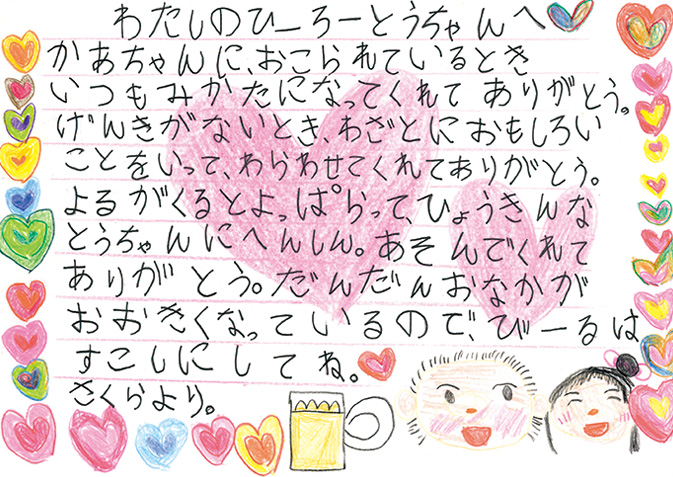 わたしのひーろーとうちゃんへ
かあちゃんに、おこられているとき
いつもみかたになってくれてありがとう。
げんきがないとき、わざとにおもしろい
ことをいって、わらわせてくれてありがとう。
よるがくるとよっぱらって、ひょうきんな
とうちゃんにへんしん。あそんでくれて
ありがとう。だんだんおなかが
おおきくなっているので、びーるは
すこしにしてね。
さくらより。